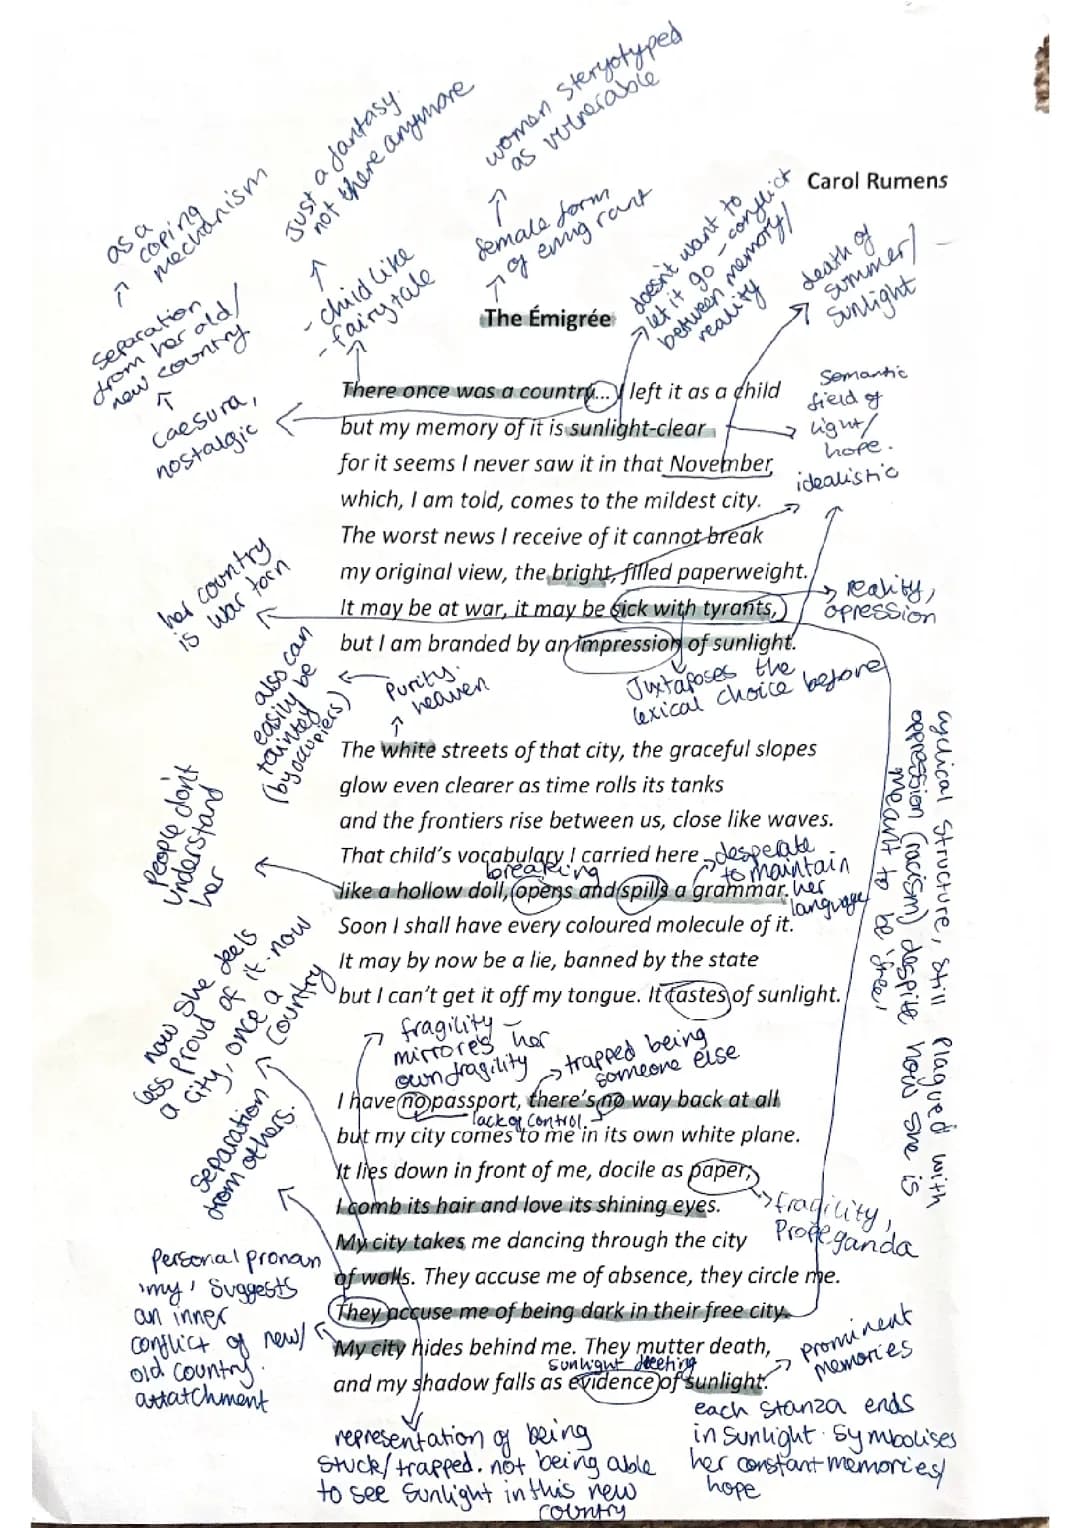 women steryotyped
as vulnerable
just a fantasy.
not there anymore
as a
coping
mechanism
Carol Rumens
female form
of emigrant
doesn't want to
let it go - conflict
between memory/
reality
death of
summer/
sunlight
- child like
- fairytale
separation
from her old/
new country
The Émigrée
caesura,
nostalgic
Semantic
field of
light/
hope.
idealistic
There once was a country... I left it as a child
but my memory of it is sunlight-clear
for it seems I never saw it in that November,
which, I am told, comes to the mildest city.
The worst news I receive of it cannot break
my original view, the bright, filled paperweight.
It may be at war, it may be sick with tyrants,
but I am branded by an impression of sunlight.
her country
is war torn
reality,
opression
Juxtaposes the
lexical choice before
Purity.
heaven
also can
easily be
tainted
(by occupiers)
The white streets of that city, the graceful slopes
glow even clearer as time rolls its tanks
and the frontiers rise between us, close like waves.
That child's vocabulary I carried here
breaking
like a hollow doll, opens and spills a grammar.
Soon I shall have every coloured molecule of it.
It may by now be a lie, banned by the state
but I can't get it off my tongue. It tastes of sunlight.
desperate
to maintain
her
language
People don't
understand
her
cyclical structure, still plagued with
oppression (racism) despite how she is
meant to be 'free'
now she feels
less proud of it. now
a city, once a
country
fragility -
mirrores her
own fragility
trapped being
someone else
I have no passport, there's no way back at all
lack of control.
but my city comes to me in its own white plane.
It lies down in front of me, docile as paper;
I comb its hair and love its shining eyes.
My city takes me dancing through the city
of walls. They accuse me of absence, they circle me.
They accuse me of being dark in their free city.
My city hides behind me. They mutter death,
sunlight fleeting
and my shadow falls as evidence of sunlight.
separation
from others.
fragility,
Propeganda
Personal pronoun
'my' suggests
an inner
conflict of new/
old country.
attatchment
prominent
memories
representation of being
stuck/trapped. not being able
to see sunlight in this new
country
each stanza ends
in sunlight. Symbolises
her constant memories/
hope